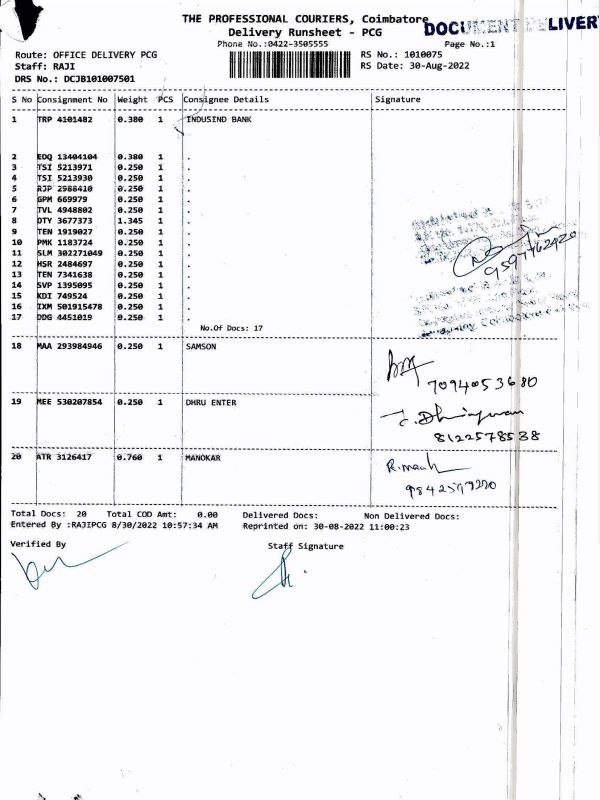 THE PROFESSIONAL COURIERS, Coimbatore
DOCUMENT DELIVER
Delivery Runsheet - PCG
Phone No.:0422-3505555
Page No.:1
Route: OFFICE DELIVERY PCG
RS No.: 1010075
Staff: RAJI
RS Date: 30-Aug-2022
DRS No.: DCJB101007501
S No Consignment No Weight PCS Consignee Details Signature
1 TRP 4101482 0.380 1 INDUSIND BANK
2 EDQ 13404104 0.380 1 .
3 TSI 5213971 0.250 1 .
4 TSI 5213930 0.250 1 .
5 RJP 2988410 0.250 1 .
6 GPM 669979 0.250 1 .
7 TVL 4948802 0.250 1 .
8 OTY 3677373 1.345 1 .
9 TEN 1919027 0.250 1 .
10 PMK 1183724 0.250 1 .
11 SLM 302271049 0.250 1 .
12 HSR 2484697 0.250 1 .
13 TEN 7341638 0.250 1 .
14 SVP 1395095 0.250 1 .
15 KDI 749524 0.250 1 .
16 IXM 501915478 0.250 1 .
17 DDG 4451019 0.250 1 .
9597762920
No.Of Docs: 17
18 MAA 293984946 0.250 1 SAMSON
7094053680
19 MEE 530207854 0.250 1 DHRU ENTER
8122578538
20 ATR 3126417 0.760 1 MANOKAR
Total Docs: 20 Total COD Amt: 0.00 Delivered Docs: Non Delivered Docs:
Entered By :RAJIPCG 8/30/2022 10:57:34 AM Reprinted on: 30-08-2022 11:00:23
Verified By Staff Signature